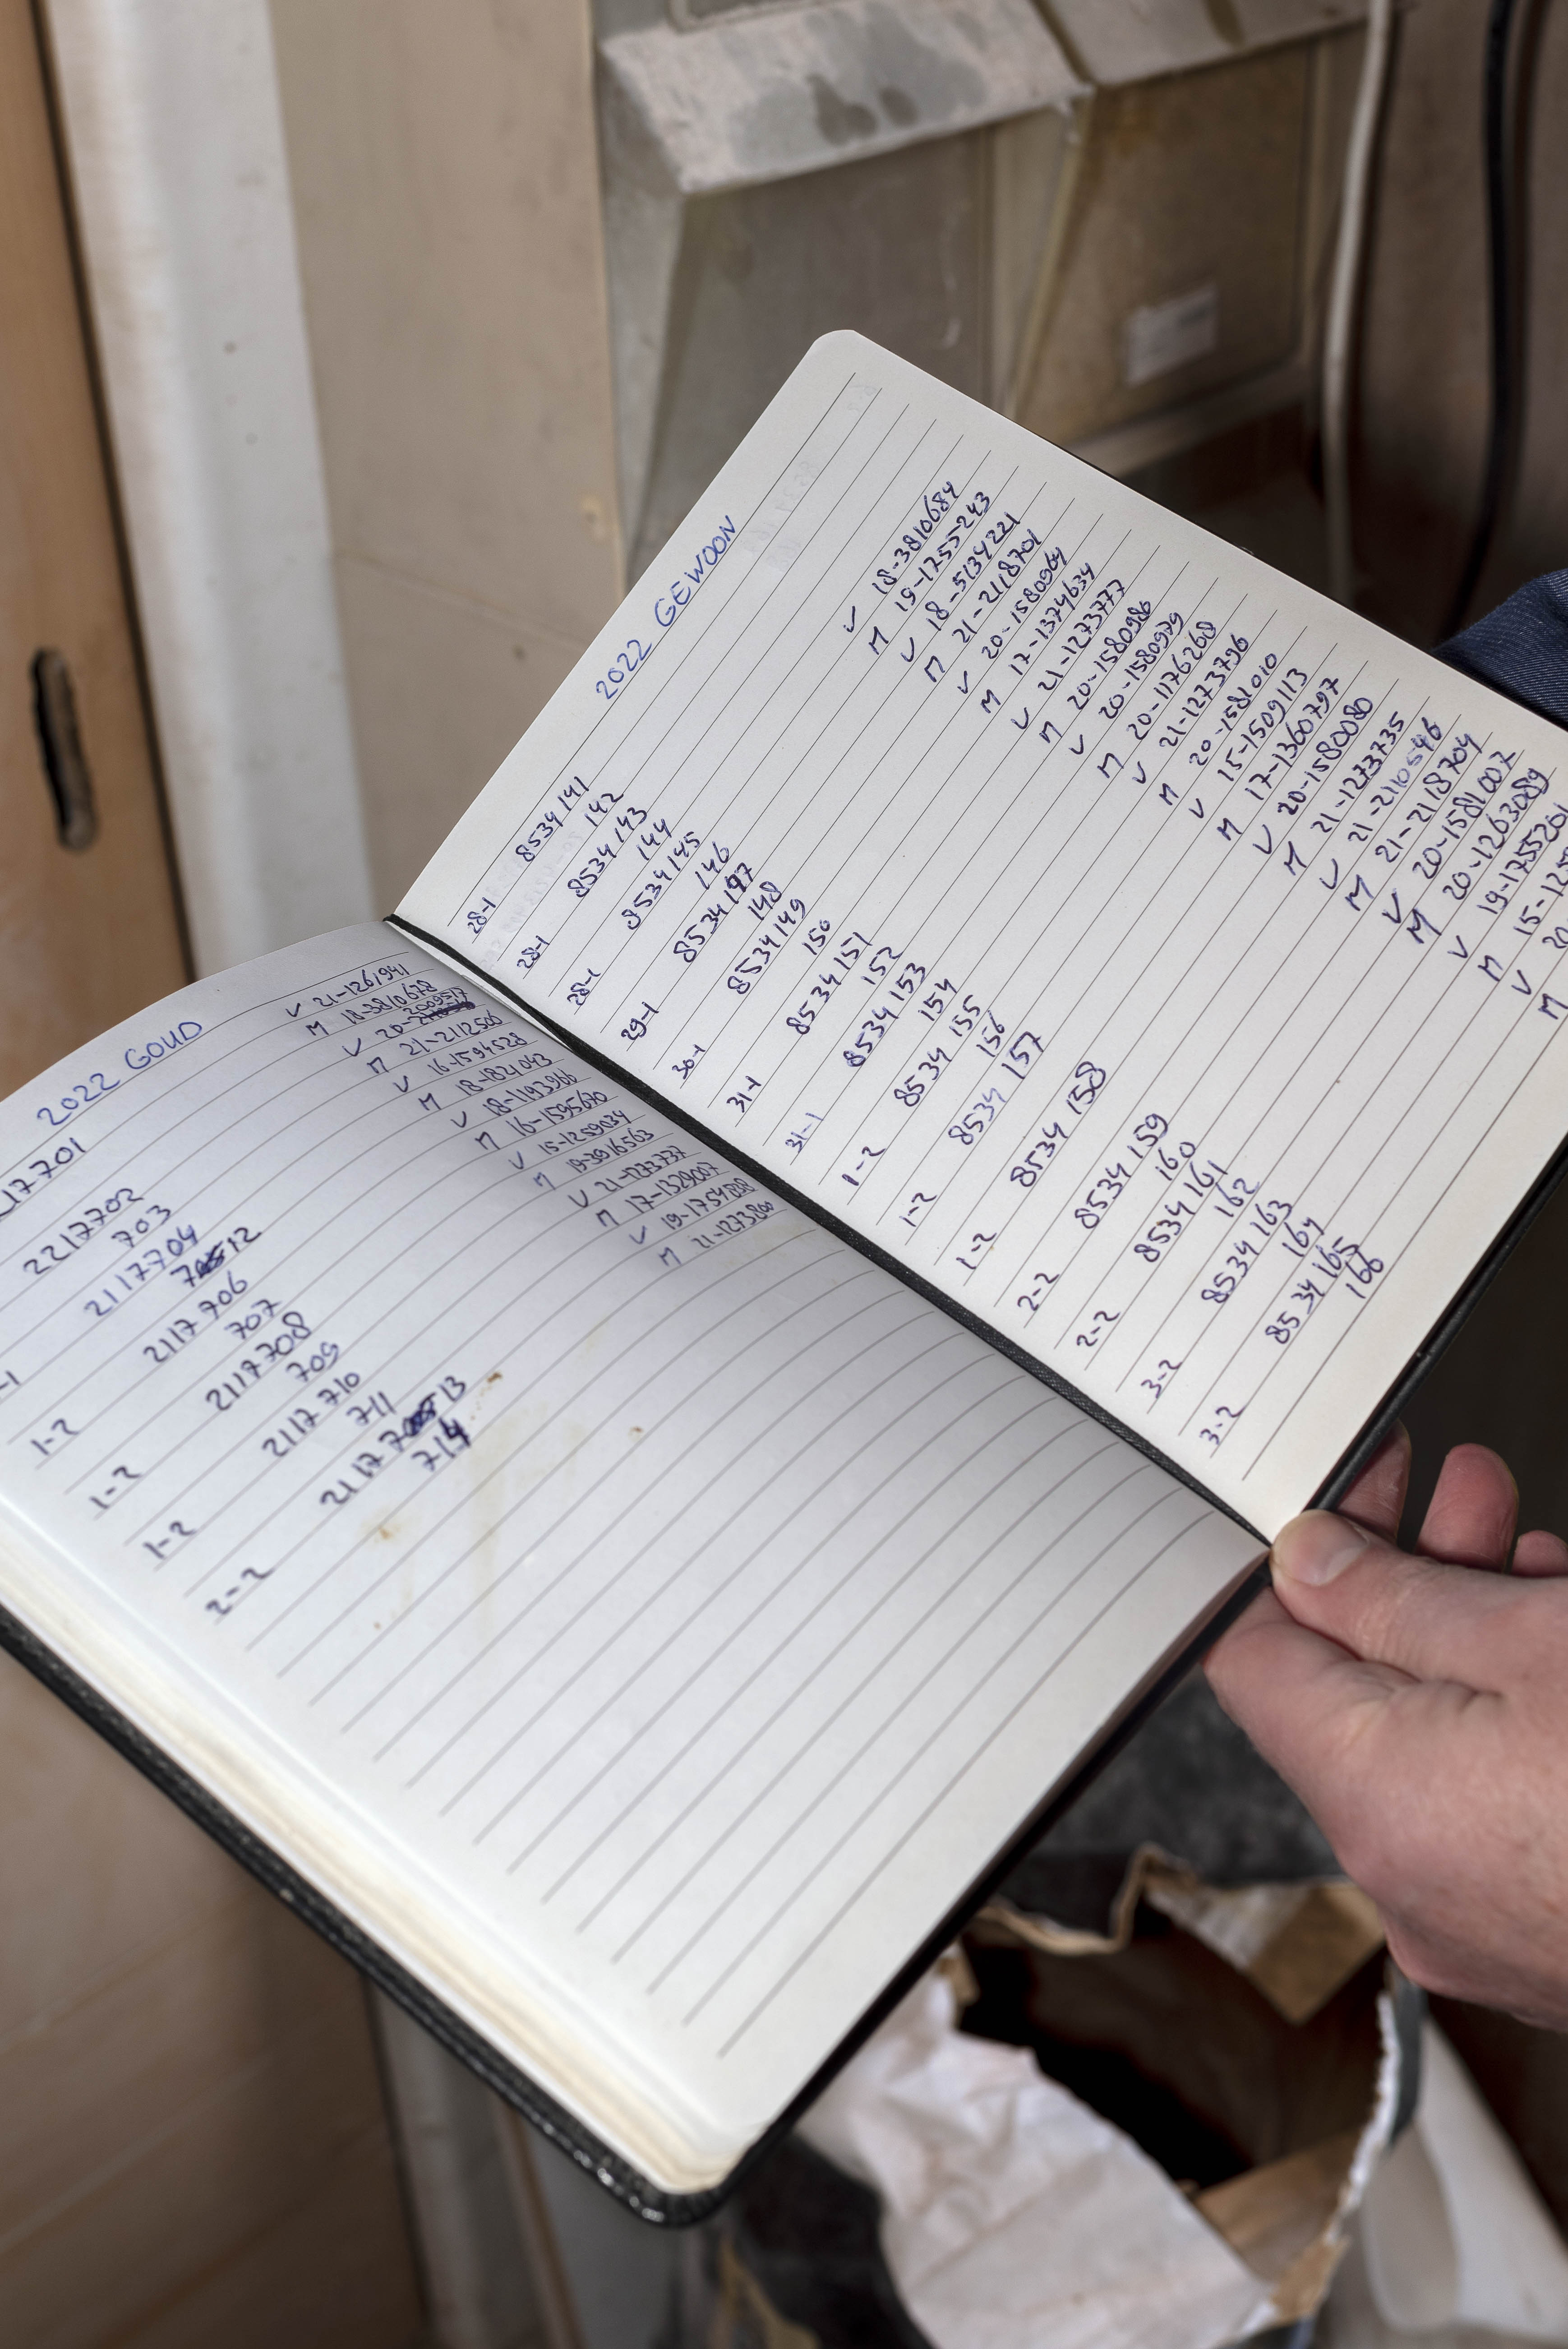 2022 GOUD
17701
2217702
703
-1 2117704
712
1-2 2117706
707
1-2 2117708
709
1-2 2117710
711
2-2 2117713
714
V 21-1261941
M 18-3810678
V 20-2009517
M 21-2112506
V 16-1594528
M 18-1821043
V 18-1193966
M 16-1595670
V 15-1259034
M 19-3916563
V 21-1273737
M 17-1329007
V 19-1754888
M 21-1273800
2022 GEWOON
28-1 8534141
142
28-1 8534143
144
28-1 8534145
146
29-1 8534147
148
30-1 8534149
150
31-1 8534151
152
31-1 8534153
154
1-2 8534155
156
1-2 8534157
1-2 8534158
2-2 8534159
160
2-2 8534161
162
3-2 8534163
164
3-2 8534165
166
V 18-3810684
M 19-1755-243
V 18-5134221
M 21-2118701
V 20-1580964
M 17-1374634
V 21-1273777
M 20-1580986
V 20-1580979
M 20-1176268
V 21-1273796
M 20-1581010
V 15-1509113
M 17-1360797
V 20-1580080
M 21-1273735
V 21-2110546
M 21-2118704
V 20-1581007
M 20-1263089
V 19-1755201
M 15-125
V 20
M